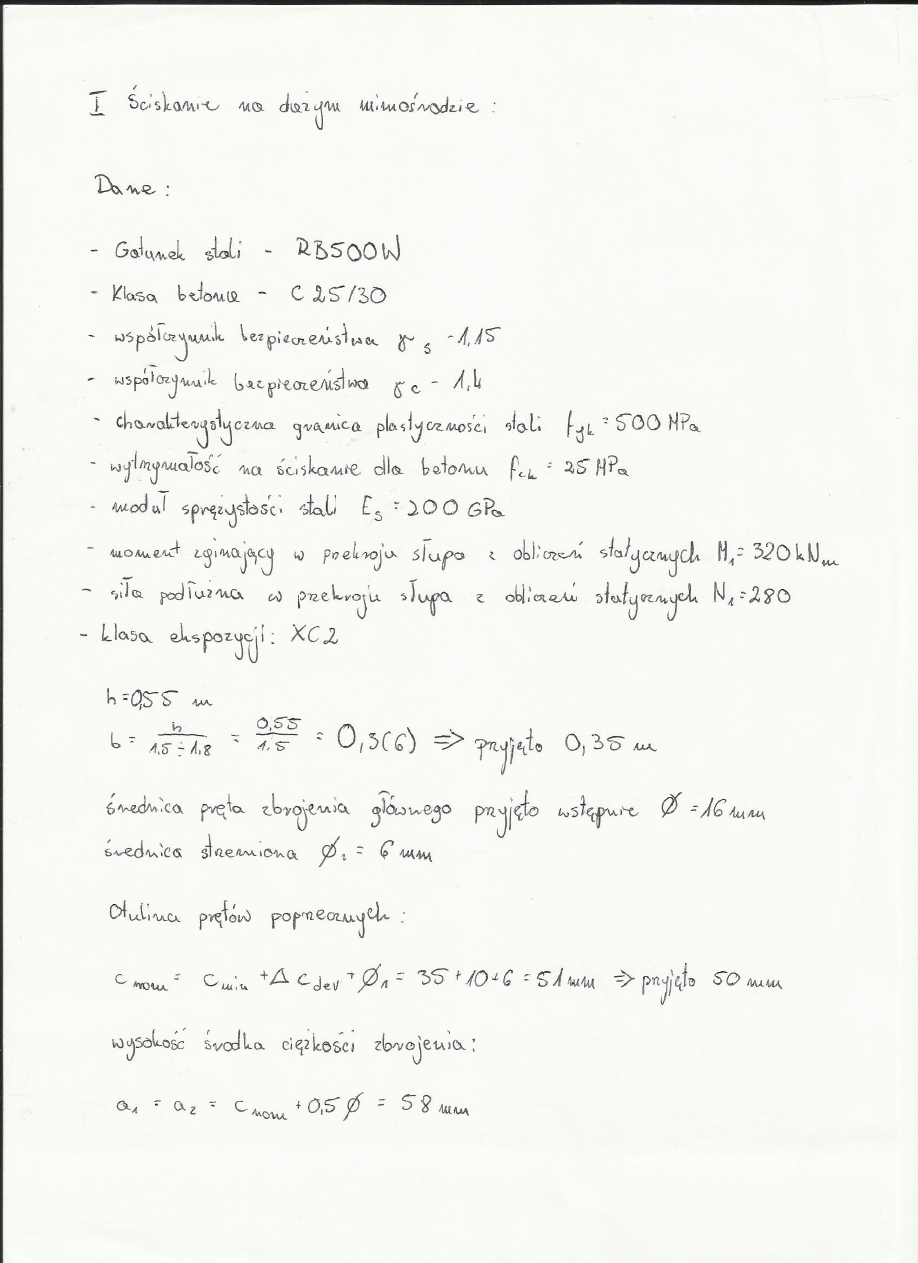 I Ściskanie na dużym mimośrodzie :
Dane :
- Gatunek stali - RB500W
- Klasa betonu - C 25/30
- współczynnik bezpieczeństwa γs - 1,15
- współczynnik bezpieczeństwa γc - 1,4
- charakterystyczna granica plastyczności stali fyk = 500 MPa
- wytrzymałość na ściskanie dla betonu fck = 25 MPa
- moduł sprężystości stali Es = 200 GPa
- moment zginający w przekroju słupa z obliczeń statycznych M1 = 320 kNm
- siła podłużna w przekroju słupa z obliczeń statycznych N1 = 280
- klasa ekspozycji : XC2
h = 0,55 m
b = h / 1,5 ÷ 1,8 = 0,55 / 1,5 = 0,3(6) => przyjęto 0,35 m
średnica pręta zbrojenia głównego przyjęto wstępnie Ø = 16 mm
średnica strzemiona Ø1 = 6 mm
Otulina prętów poprzecznych :
c nom = c min + Δ c dev + Ø1 = 35 + 10 + 6 = 51 mm => przyjęto 50 mm
wysokość środka ciężkości zbrojenia :
a1 = a2 = c nom + 0,5 Ø = 58 mm